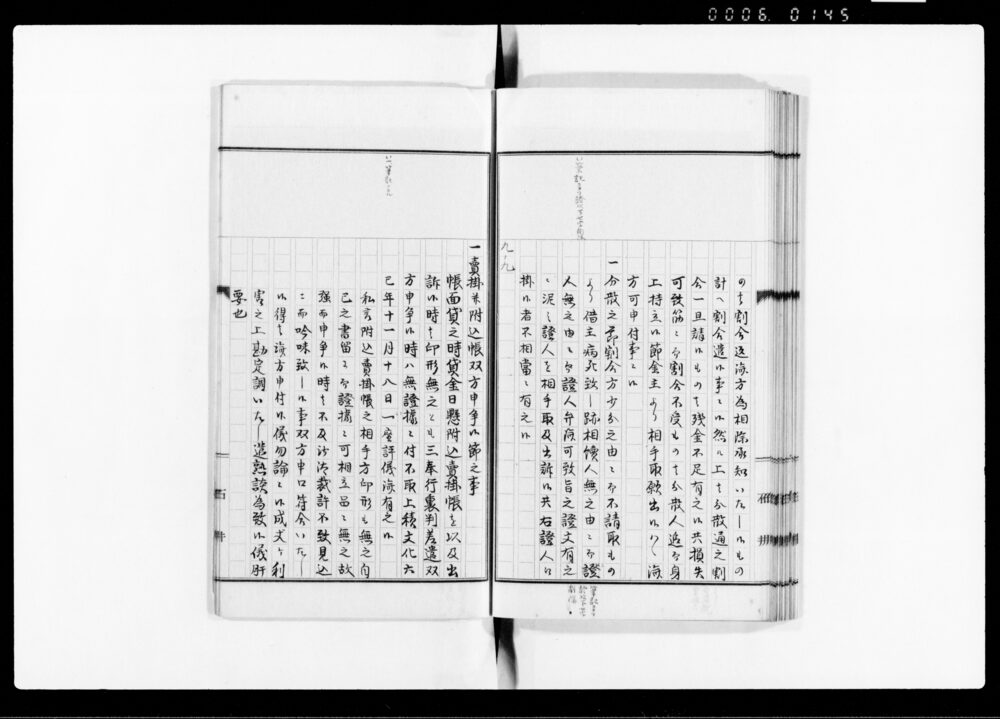 0006. 0145
の者割合返済方為相除承知いたし候もの
計へ割合遣候事に候然ル上者分散通之割
合一旦請候もの者残金不足有之候共損失
可致筋ニ而割合不受もの者分散人追而身
上持立候節金主より相手取願出候ハヽ済
方可申付事ニ候
一分散之節割合方少分之由ニ而不請取もの
より借主病死致し跡相続人無之由ニ而證
人無之由ニ而證人弁済可致旨之證文有之
ニ泥ミ證人を相手取及出訴候共右證人江
掛候者不相當ニ有之候
九ノ九
一賣掛并附込帳双方申争候節之事
帳面貸之時貸金日懸附込賣掛帳を以及出
訴候時者印形無之とも三奉行裏判差遣双
方申争候時ハ無證據ニ付不取上積文化六
巳年十一月十八日一座評儀済有之候
私云附込賣掛帳之相手方印形も無之自
己之書留ニ而證據ニ可相立品ニ無之故
強而申争候時者不及沙汰裁許不致見込
ニ而吟味致し候事双方申口符合いたし
候得者済方申付候儀勿論ニ候成丈ケ利
害之上勘定調いたし遣熟談為致候儀肝
要也